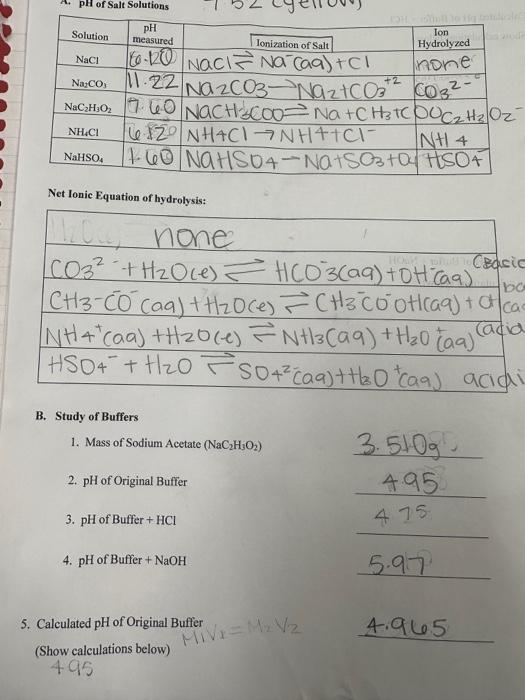 A. pH of Salt Solutions
Solution pH measured Ionization of Salt Ion Hydrolyzed
NaCl 6.120 NaCl ⇌ Na⁻(aq)+Cl none
Na₂CO₃ 11.22 Na2CO3 → Na2+CO3⁺² CO3²⁻
NaC₂H₃O₂ 7.60 NaCH3COO ⇌ Na+CH3+COO C2H2O2⁻
NH₄Cl 6.820 NH4Cl → NH4+Cl⁻ NH4
NaHSO₄ 1.60 NaHSO4 – Na+SO3+ HSO4
Net Ionic Equation of hydrolysis:
none
CO3²⁻ + H2O(l) ⇌ HCO⁻3(aq)+OH⁻(aq) (Basic
CH3-CO⁻(aq) + H2O(l) ⇌ CH3COOH(aq) +
NH4⁺(aq) + H2O(l) ⇌ NH3(aq) + H3O⁺(aq)
HSO4⁻ + H2O ⇌ SO4²⁻(aq) + H3O⁺(aq) acidi
B. Study of Buffers
1. Mass of Sodium Acetate (NaC₂H₃O₂) 3.510g
2. pH of Original Buffer 4.95
3. pH of Buffer + HCl 4.75
4. pH of Buffer + NaOH 5.97
5. Calculated pH of Original Buffer 4.965
M1V1=M2V2
(Show calculations below)
4.95